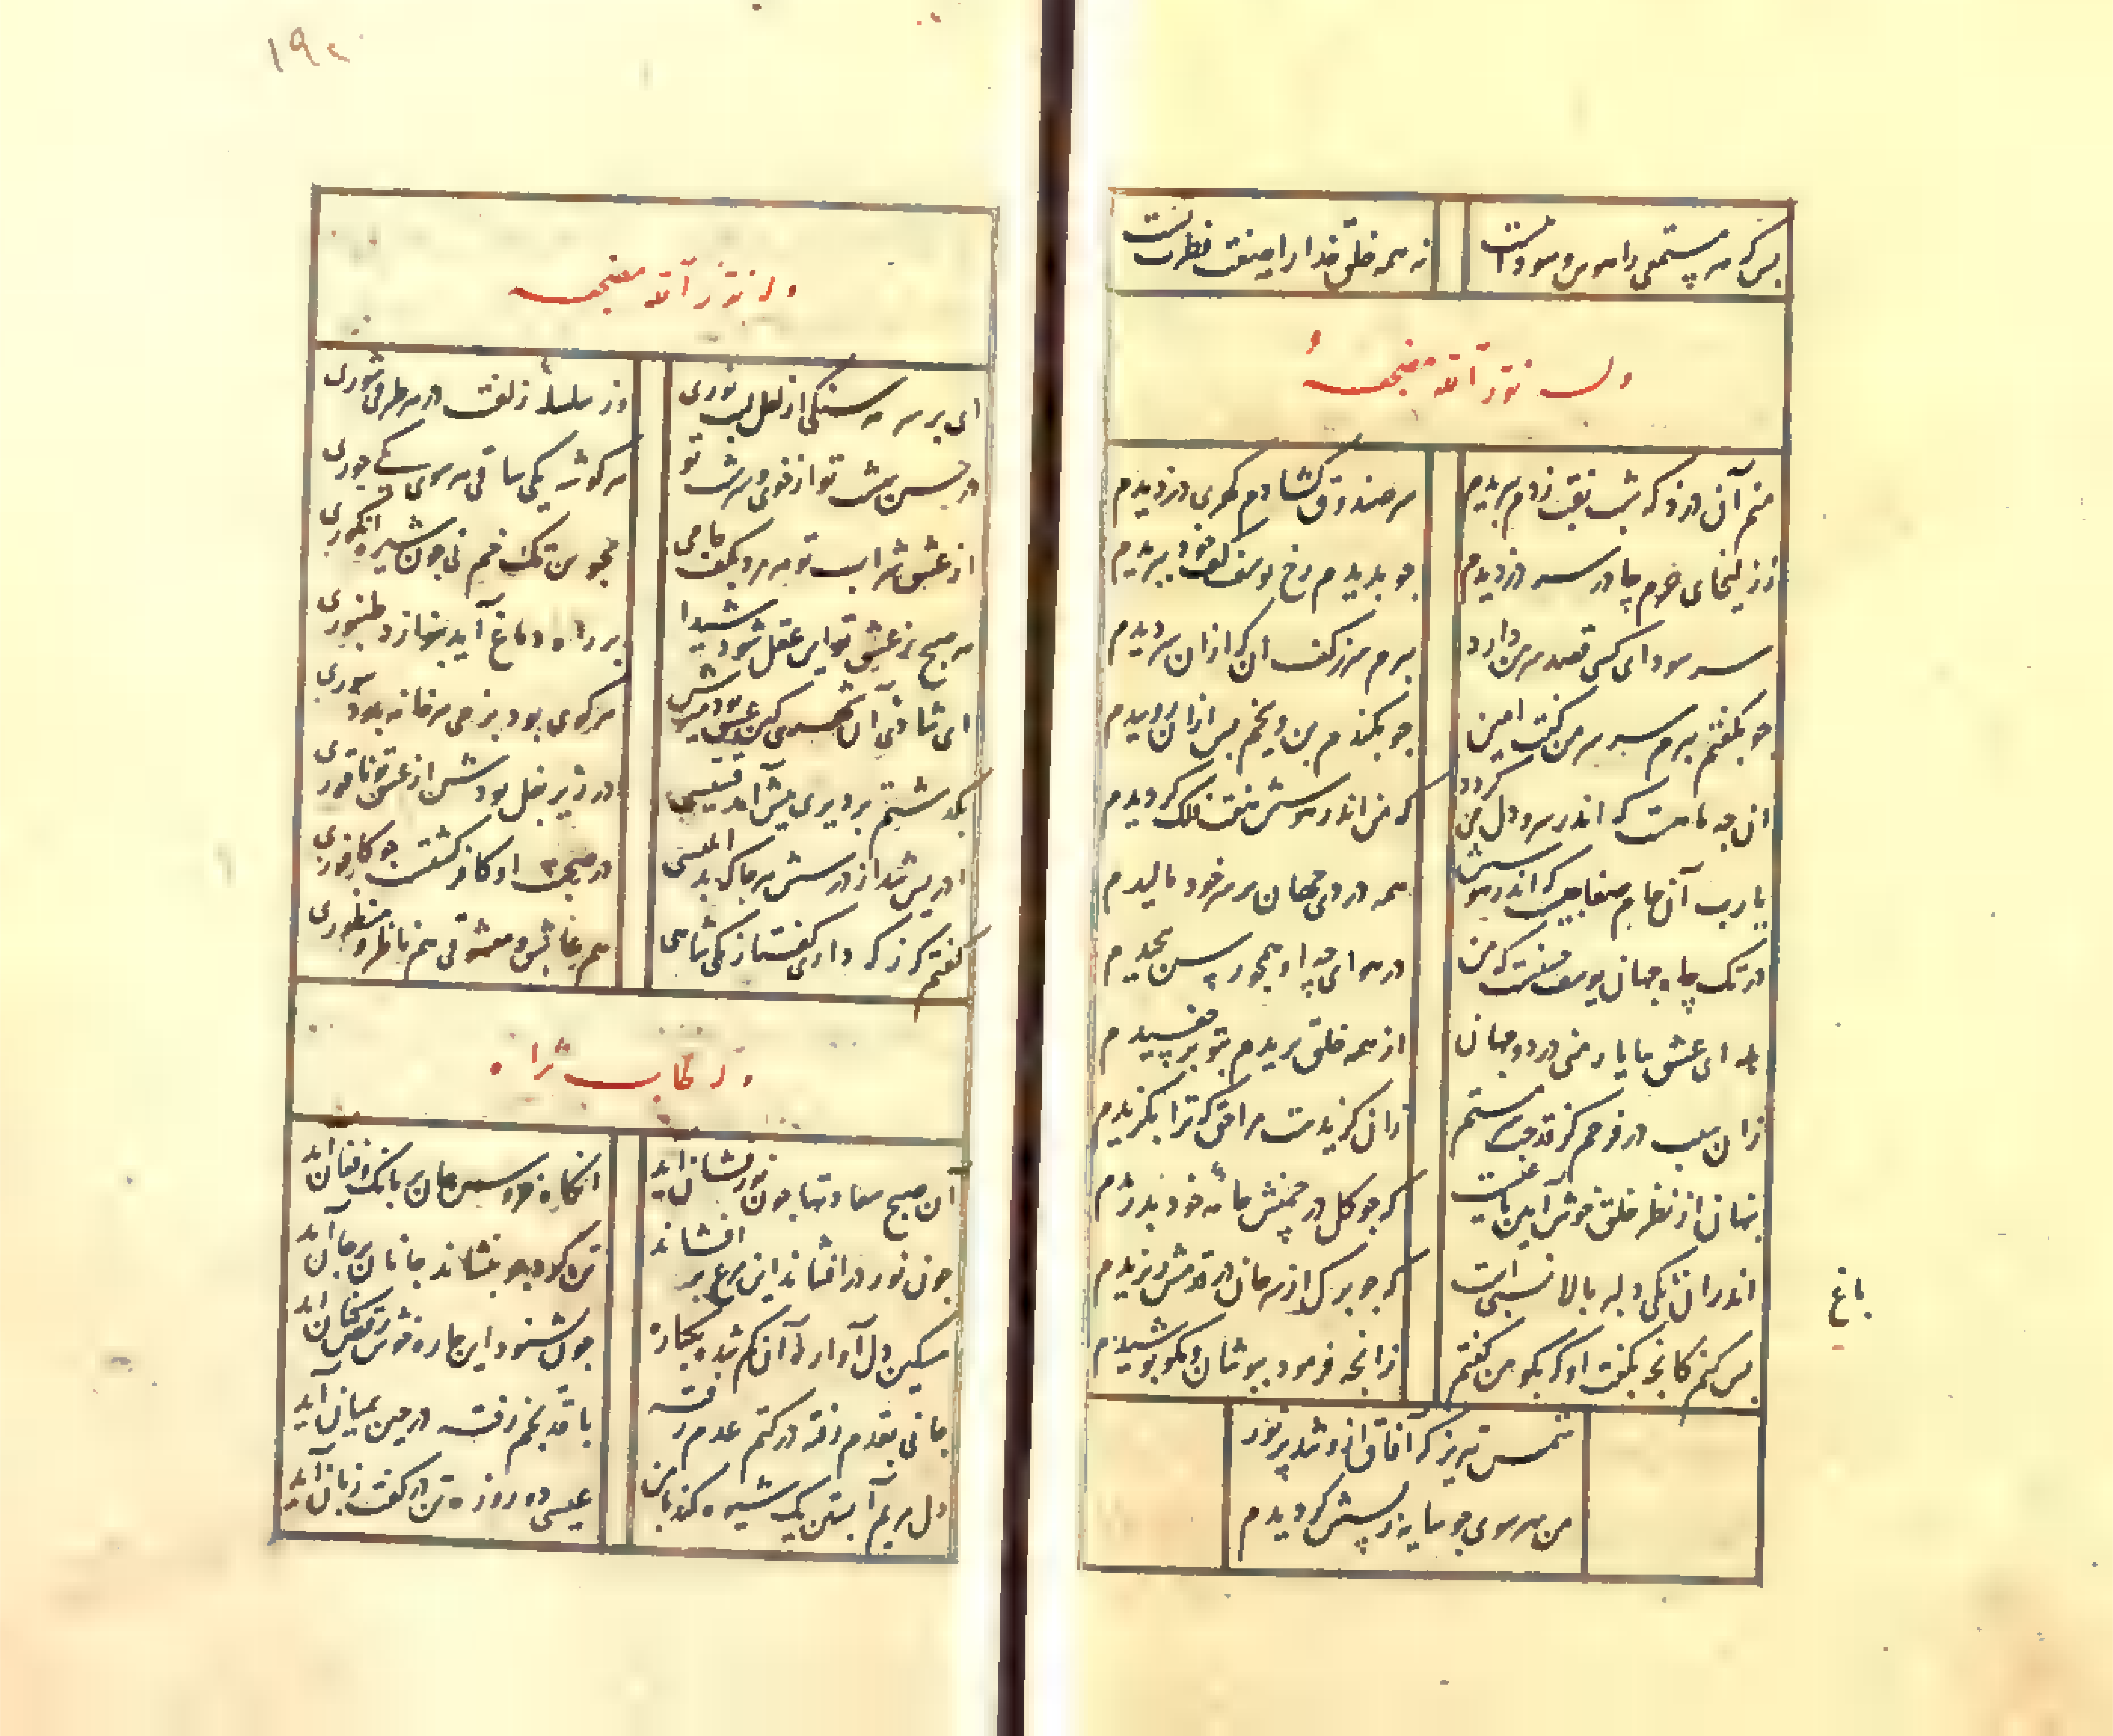 بس کن هر مستمعی را هوس و سوداست
نه همه خلق خدا را صفت فطرتست
وله نور الله مضجعه
منم آن دزد که شب نقب زدم ببریدم
سر صندوق کشادم کهری دزدیدم
ز زلیخای حرم چادر سر دزدیدم
چو بدیدم رخ یوسف کف خود ببریدم
سر سودای کسی قصد سر من دارد
ببرم سر ز کف آن که ازان سر دیدم
چو بگفتم ببرم سر سر من گفت امین
چو بکندم بن و بیخم بس ازان روییدم
این چه ماهست که اندر سر و دل میگردد
که من اندر هوسش هفت فلک گردیدم
یا رب آن جام صفا چیست که اندر هوسش
همه دردی جهان بر سر خود مالیدم
در تک چاه جهان یوسف حسنست که من
در هوای چه او همچو رسن پیچیدم
هله ای عشق بیا یار منی در دو جهان
از همه خلق بریدم بتو برچفسیدم
زان سبب در فرحم کز قدحت مستم
زان گزیدست مرا حق که ترا بگزیدم
پنهان از نظر خلق خوش آیین باغیست
که چو گل در چمنش جامه خود بدریدم
اندران باغ یکی دلبر بالا شجریست
که چو برگ از سر جان در قدمش ریزیدم
بس کنم کانچه بگفت او که بگو من گفتم
زانچه فرمود بپوشان و مگو پوشیدم
شمس تبریز که آفاق ازو شد پر نور
من بهر سوی چو سایه ز پسش گردیدم
باغ
۱۹۲
وله نور الله مضجعه
ای بر سر هر سنگی از لعل لبت نوری
وز سلسلهٔ زلفت در هر طرفی شوری
در حسن بهشت تو از خوی سرشت تو
هر گوشه یکی ساقی هر سوی یکی حوری
از عشق شراب تو هر مرد بکف جامی
همچون تک خم نی چون شیره انگوری
هر صبح ز عشق تو این عقل شود شیدا
بر راه دماغ آید بنوازد طنبوری
ای شادی آن شهری کین عشق بود میرش
هر کوی بود بزمی هر خانه بود سوری
بگذشتم بر دیری پیش آمد قسیسی
در زیر بغل بودش از عشق تو ناقوری
ادریس شد از درسش هر جا که بد ابلیسی
در صحبت او کافر گشتست چو کافوری
گفتم که ز که داری گفتا ز یکی شاهی
هم عاشق و معشوقی هم ناظر و منظوری
وله طاب ثراه
آن صبح سعادتها چون نورفشان آید
آنگاه خروس جان در بانگ و فغان آید
چون نور در افشاند این مرغ پر افشاند
تن گرد چو بنشاند جانان بر جان آید
مسکین دل آواره آن گم شده یکباره
چون بشنود این چاره خوش رقص کنان آید
جانی بقدم رفته در کتم عدم رفته
با قد بخم رفته در حین بمیان آید
دل مریم آبستن یک شیوه کند با من
عیسی دو روزه تن در گفت زبان آید